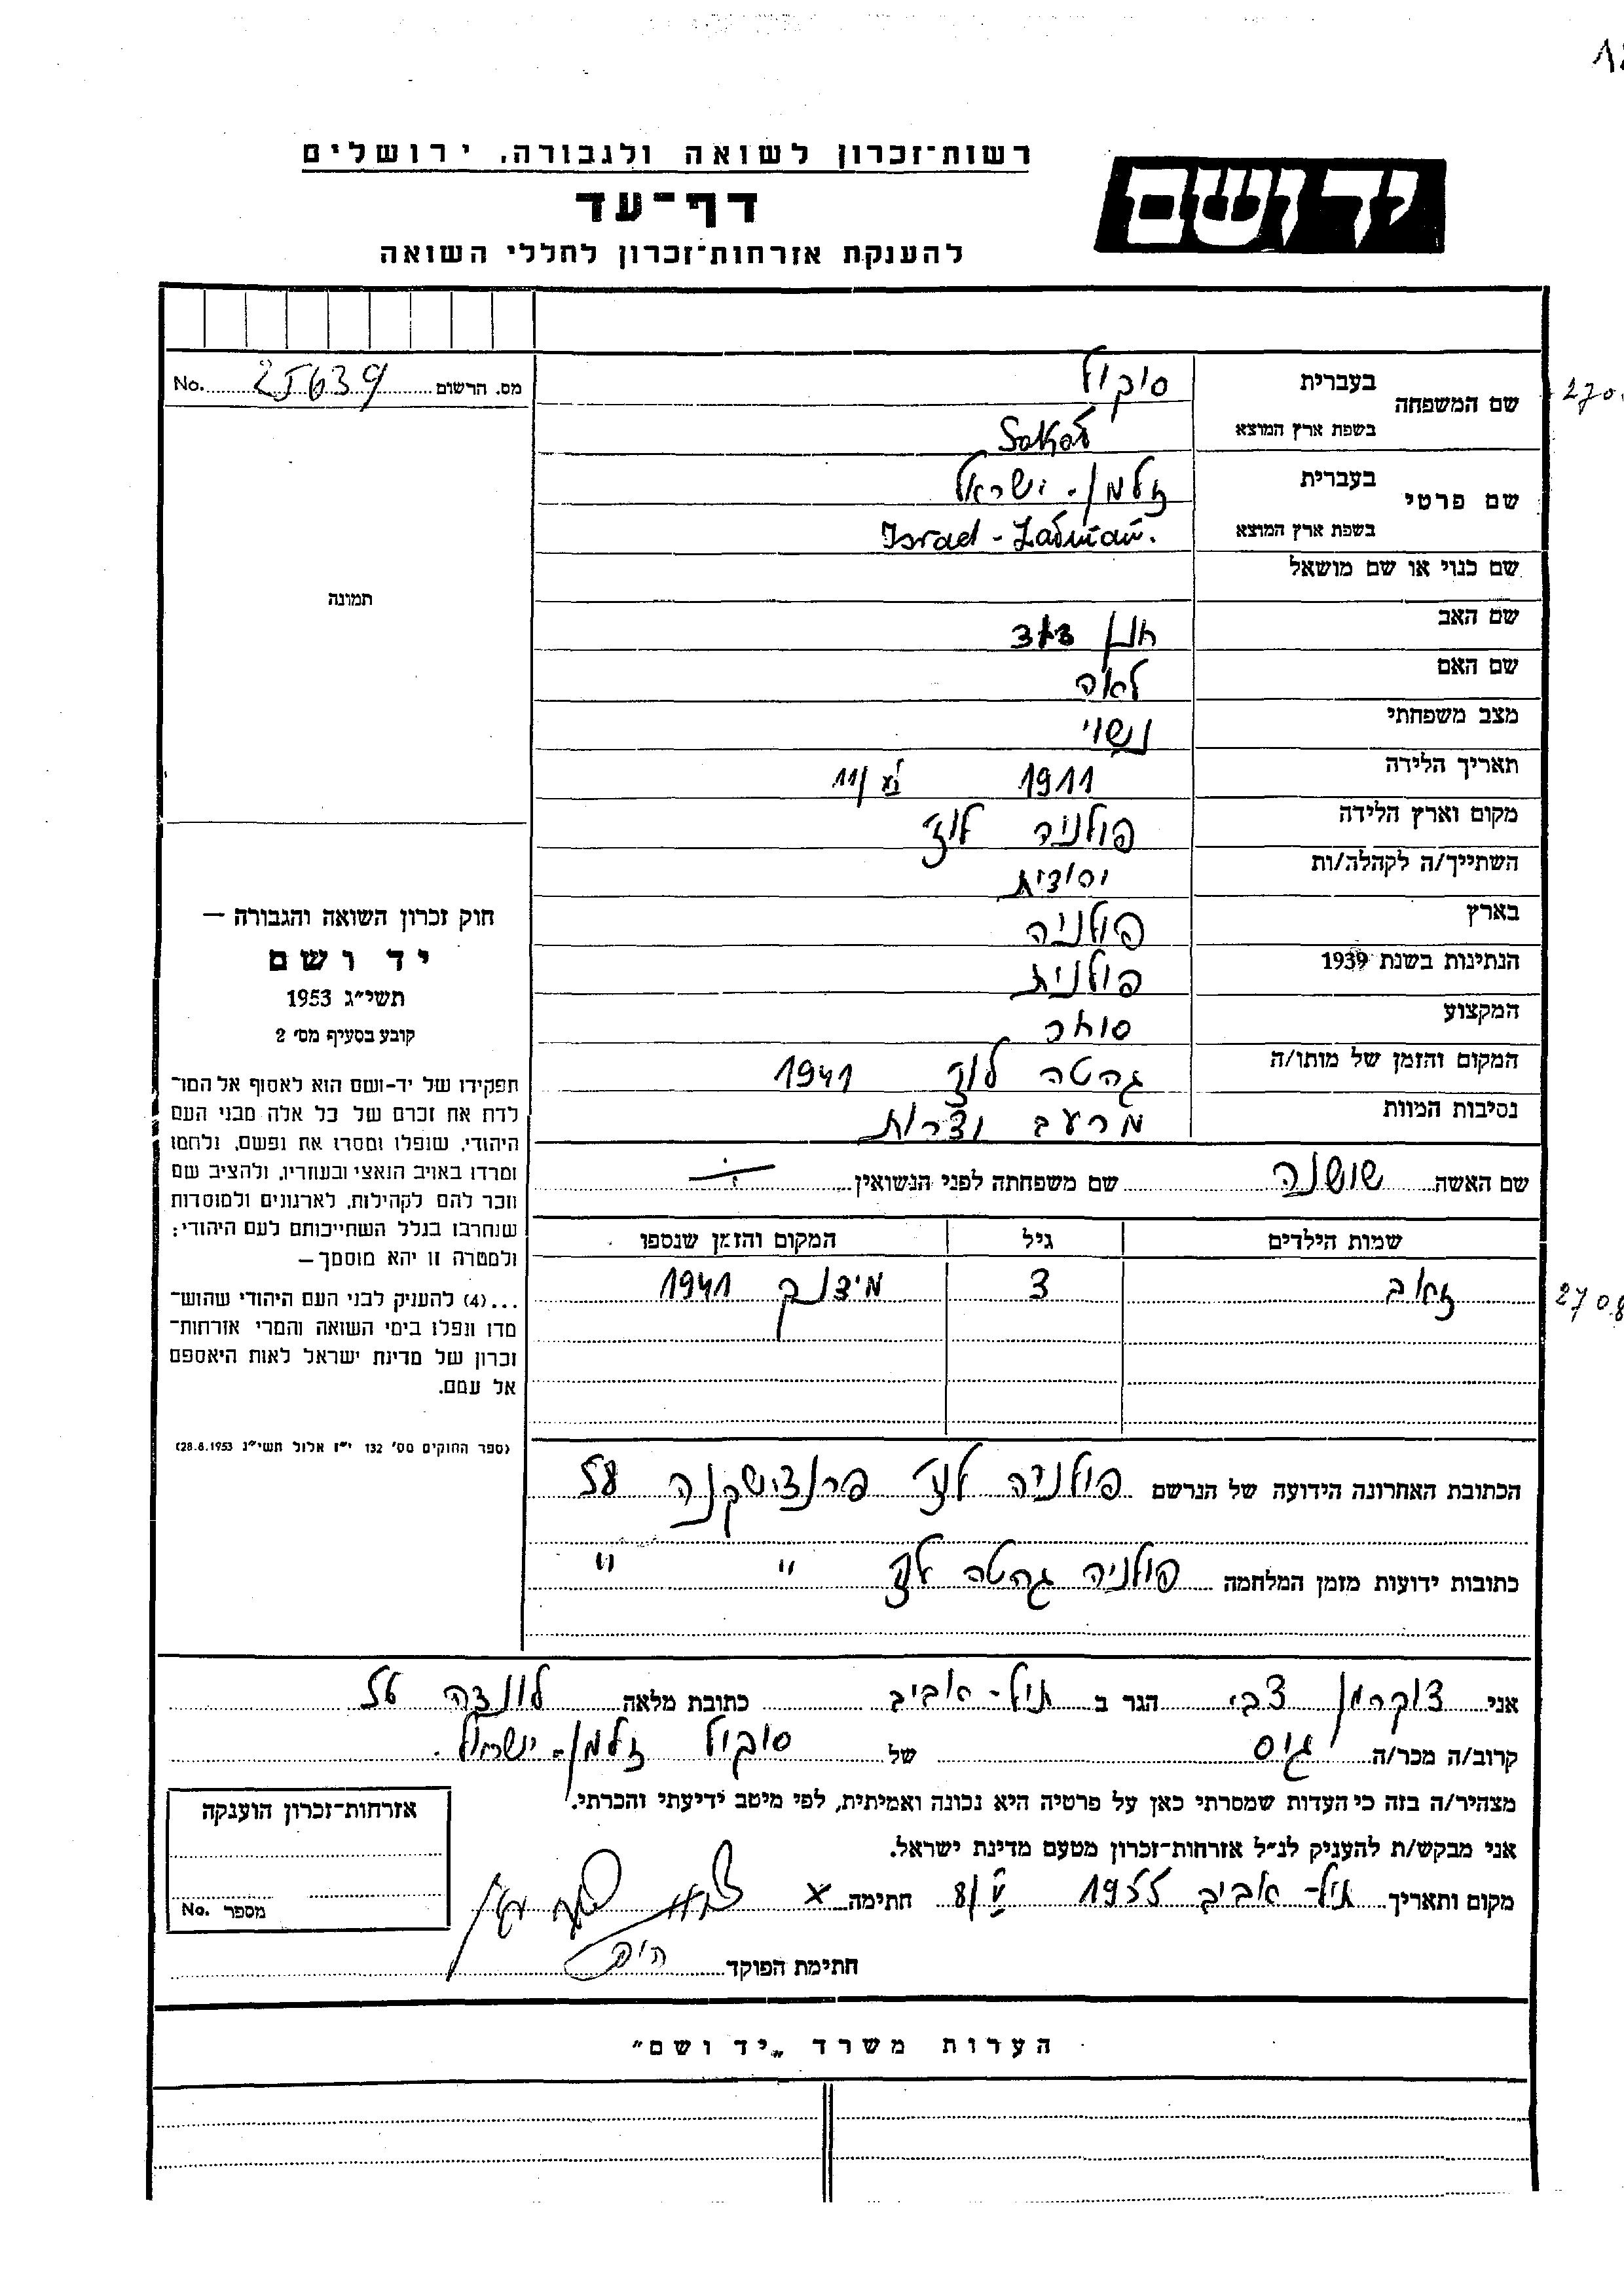 רשות־זכרון לשואה ולגבורה, ירושלים
יד ושם
דף־עד
להענקת אזרחות־זכרון לחללי השואה
מס. הרשום 25639 No.
שם המשפחה
בעברית סוקול
בשפת ארץ המוצא Sokół
שם פרטי
בעברית זלמן - ישראל
בשפת ארץ המוצא Israel - Załman.
שם כנוי או שם מושאל
שם האב
שם האם לאה
מצב משפחתי נשוי
תאריך הלידה 1911
מקום וארץ הלידה פולניה לודז'
השתייך/ה לקהלה/ות
בארץ פולניה
הנתינות בשנת 1939 פולנית
המקצוע סוחר
המקום והזמן של מותו/ה גהטה לודז 1941
נסיבות המוות מרעב וצרות
שם האשה שושנה שם משפחתה לפני הנשואין
שמות הילדים גיל המקום והזמן שנספו
זאב 3 1941
הכתובת האחרונה הידועה של הנרשם פולניה לודז' פרנצישקנה 58
כתובות ידועות מזמן המלחמה פולניה גהטה לודז' " "
תמונה
חוק זכרון השואה והגבורה —
יד ושם
תשי״ג 1953
קובע בסעיף מס׳ 2
תפקידו של יד-ושם הוא לאסוף אל המו־
לדת את זכרם של כל אלה מבני העם
היהודי, שנפלו ומסרו את נפשם, נלחמו
ומרדו באויב הנאצי ובעוזריו, ולהציב שם
וזכר להם לקהילות, לארגונים ולמוסדות
שנחרבו בגלל השתייכותם לעם היהודי;
ולמטרה זו יהא מוסמך —
...(4) להעניק לבני העם היהודי שהוש־
מדו ונפלו בימי השואה והמרי אזרחות־
זכרון של מדינת ישראל לאות היאספם
אל עמם.
(ספר החוקים מס׳ 132 י״ז אלול תשי״ג 28.8.1953)
אני צוקרמן צבי הגר ב תל-אביב כתובת מלאה 56
קרוב/ה מכר/ה גיס של סוקול זלמן - ישראל.
מצהיר/ה בזה כי העדות שמסרתי כאן על פרטיה היא נכונה ואמיתית, לפי מיטב ידיעתי והכרתי.
אני מבקש/ת להעניק לנ״ל אזרחות־זכרון מטעם מדינת ישראל.
מקום ותאריך תל-אביב 1955 8/V חתימה x
חתימת הפוקד
אזרחות־זכרון הוענקה
מספר No.
הערות משרד „יד ושם״